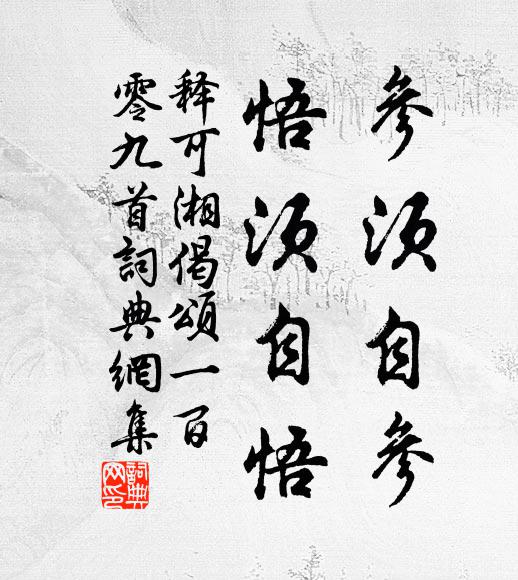 參須自參
悟須自悟
释可湘偈頌一百
零九首詞典網集
詞典网印